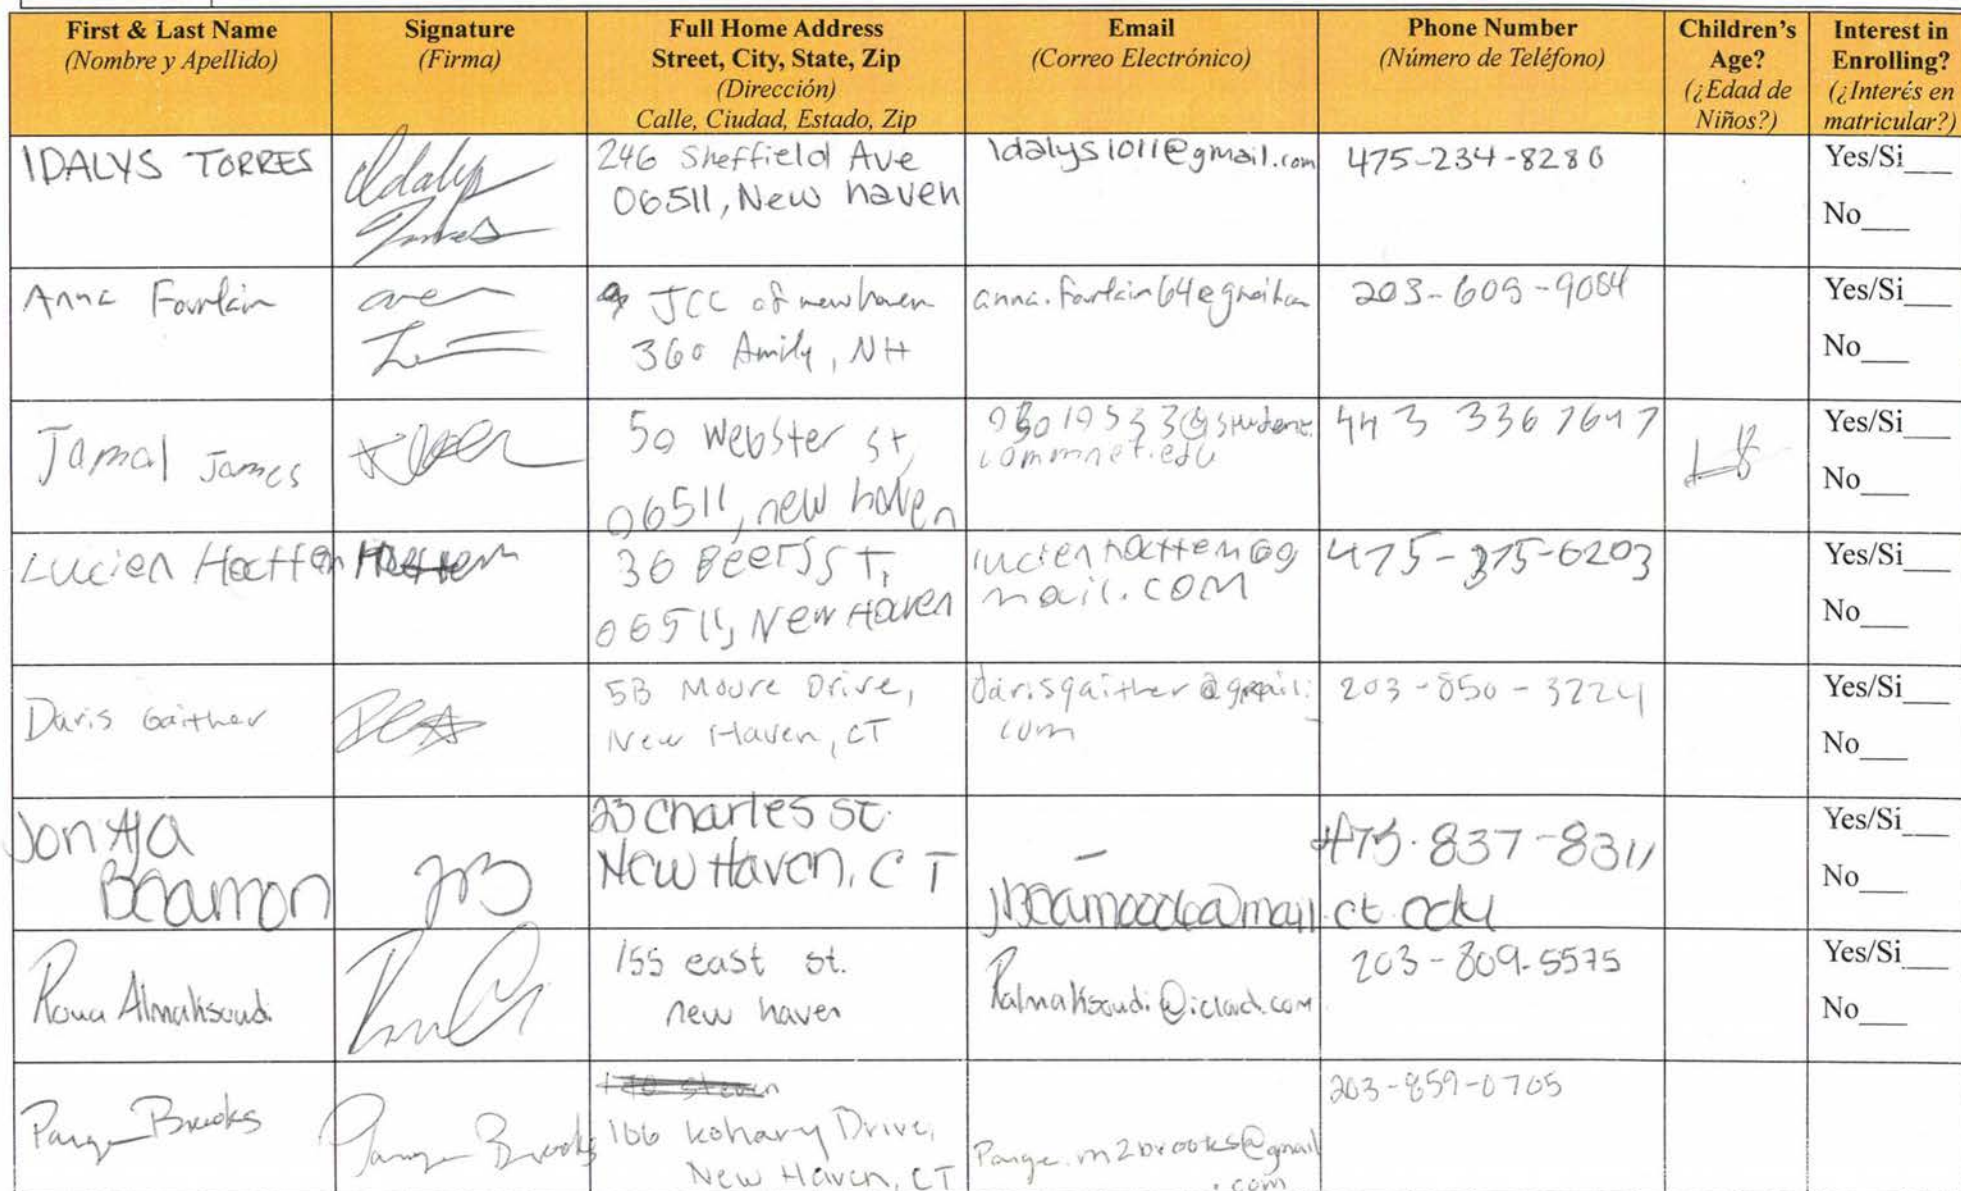 First & Last Name
(Nombre y Apellido)
Signature
(Firma)
Full Home Address
Street, City, State, Zip
(Dirección)
Calle, Ciudad, Estado, Zip
Email
(Correo Electrónico)
Phone Number
(Número de Teléfono)
Children's
Age?
(¿Edad de
Niños?)
Interest in
Enrolling?
(¿Interés en
matricular?)
IDALYS TORRES
Idalys
Torres
246 Sheffield Ave
06511, New haven
Idalys1011@gmail.com
475-234-8286
Yes/Si___
No___
Anna Fountain
JCC of new haven
360 Amity, NH
anna.fountain64@gmail.com
203-605-9084
Yes/Si___
No___
Jamal James
50 Webster st,
06511, new haven
student.
commnet.edu
443 336 7647
Yes/Si___
No___
Lucien Hoctten
36 Beers ST,
06511, New Haven
475-375-6203
Yes/Si___
No___
Daris Gaither
5B Moure Drive,
New Haven, CT
darisgaither@gmail.
com
203-850-3224
Yes/Si___
No___
Jontja
Beamon
JB
23 Charles St.
New Haven, CT
475-837-8311
Yes/Si___
No___
Roua Almaksoudi
155 east st.
new haven
Ralmaksoudi@icloud.com
203-809-5575
Yes/Si___
No___
Paige Brooks
Paige Brooks
166 Kohary Drive,
New Haven, CT
Paige.m2brooks@gmail
.com
203-859-0705